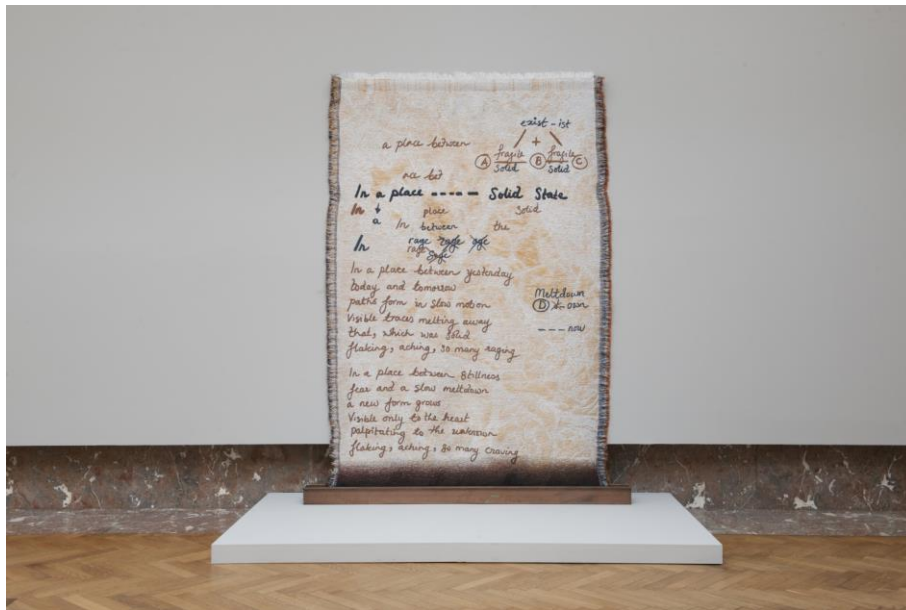 exist - ist
a place between
+
A fragile B fragile C
solid solid
ace bet
In a place ----- Solid State
In t place solid
a
In between the
In rage rage age
rage
In a place between yesterday
today and tomorrow
paths form in slow motion
Visible traces melting away
that, which was solid
flaking, aching, so many raging
Meltdown
D
--- now
In a place between Stillness
fear and a slow meltdown
a new form grows
Visible only to the heart
palpitating to the unknown
flaking, aching, so many craving